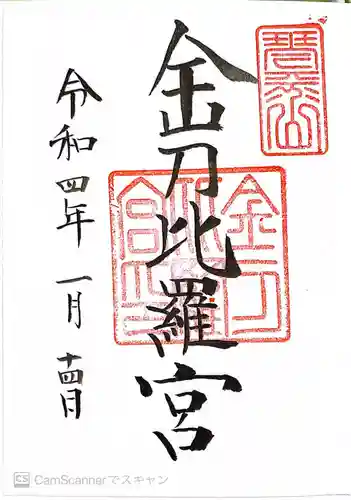 金刀比羅宮
令和四年一月十四日
CS CamScannerでスキャン